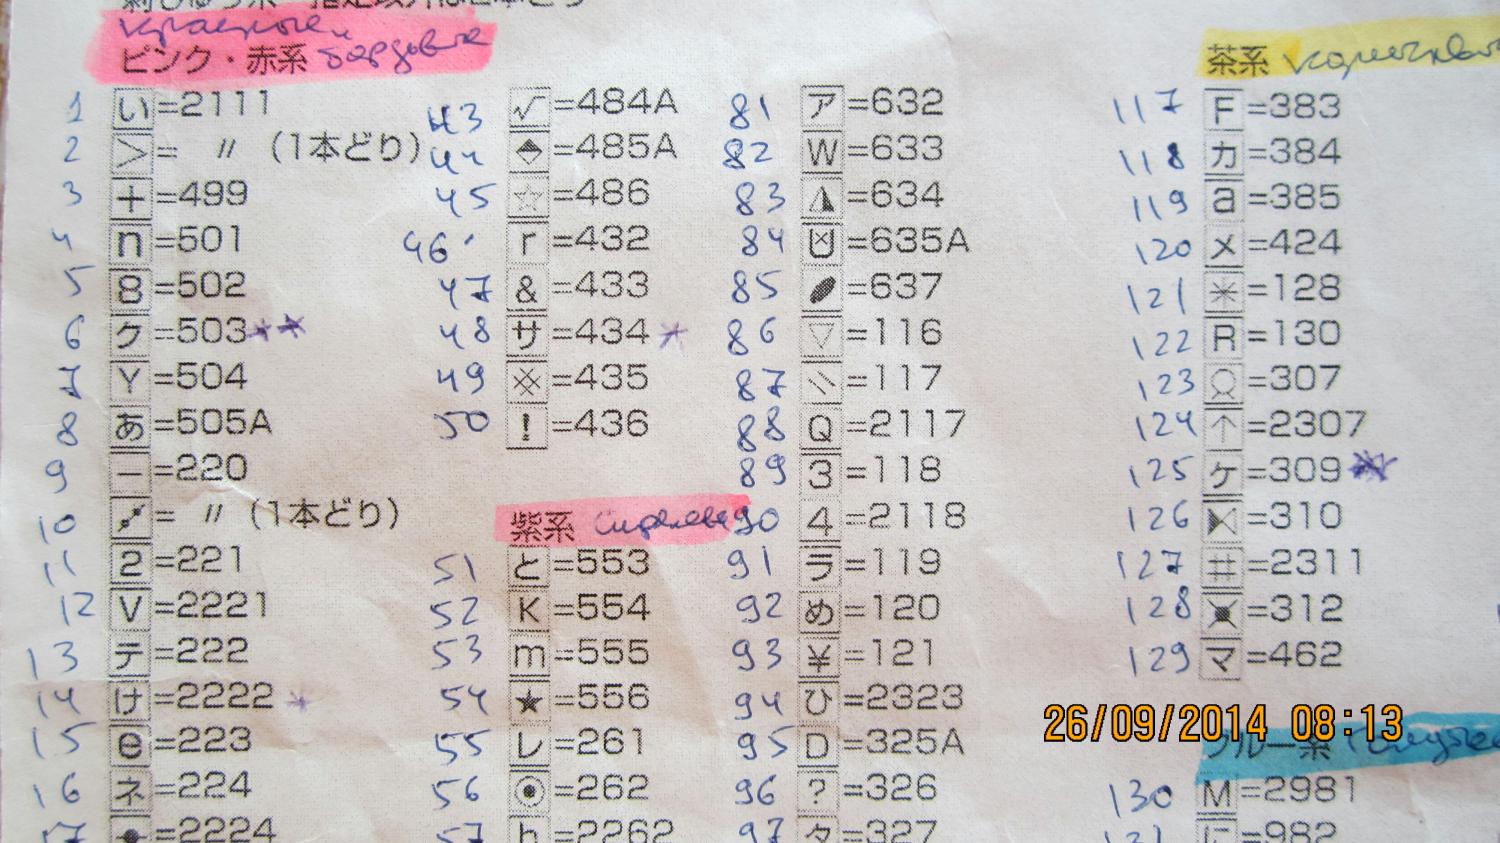 刺しゅう糸 指定以外は2本どり
красные и
ピンク・赤系 бордовые
1 い=2111
2 >= 〃 (1本どり)
3 +=499
4 n=501
5 8=502
6 ク=503**
7 Y=504
8 あ=505A
9 −=220
10 = 〃 (1本どり)
11 2=221
12 V=2221
13 テ=222
14 け=2222*
15 e=223
16 ネ=224
17 =2224
43 √=484A
44 ⬘=485A
45 ☆=486
46 r=432
47 &=433
48 サ=434*
49 ※=435
50 !=436
紫系 сиреневые
51 と=553
52 K=554
53 m=555
54 ★=556
55 レ=261
56 ◉=262
57 h=2262
81 ア=632
82 W=633
83 ◮=634
84 =635A
85 =637
86 ▽=116
87 =117
88 Q=2117
89 3=118
90 4=2118
91 ラ=119
92 め=120
93 ¥=121
94 ひ=2323
95 D=325A
96 ?=326
97 タ=327
茶系 коричневые
117 F=383
118 カ=384
119 a=385
120 メ=424
121 ✳=128
122 R=130
123 Ω=307
124 ↑=2307
125 ケ=309*
126 =310
127 #=2311
128 =312
129 マ=462
26/09/2014 08:13
ブルー系 голубые
130 M=2981
131 に=982